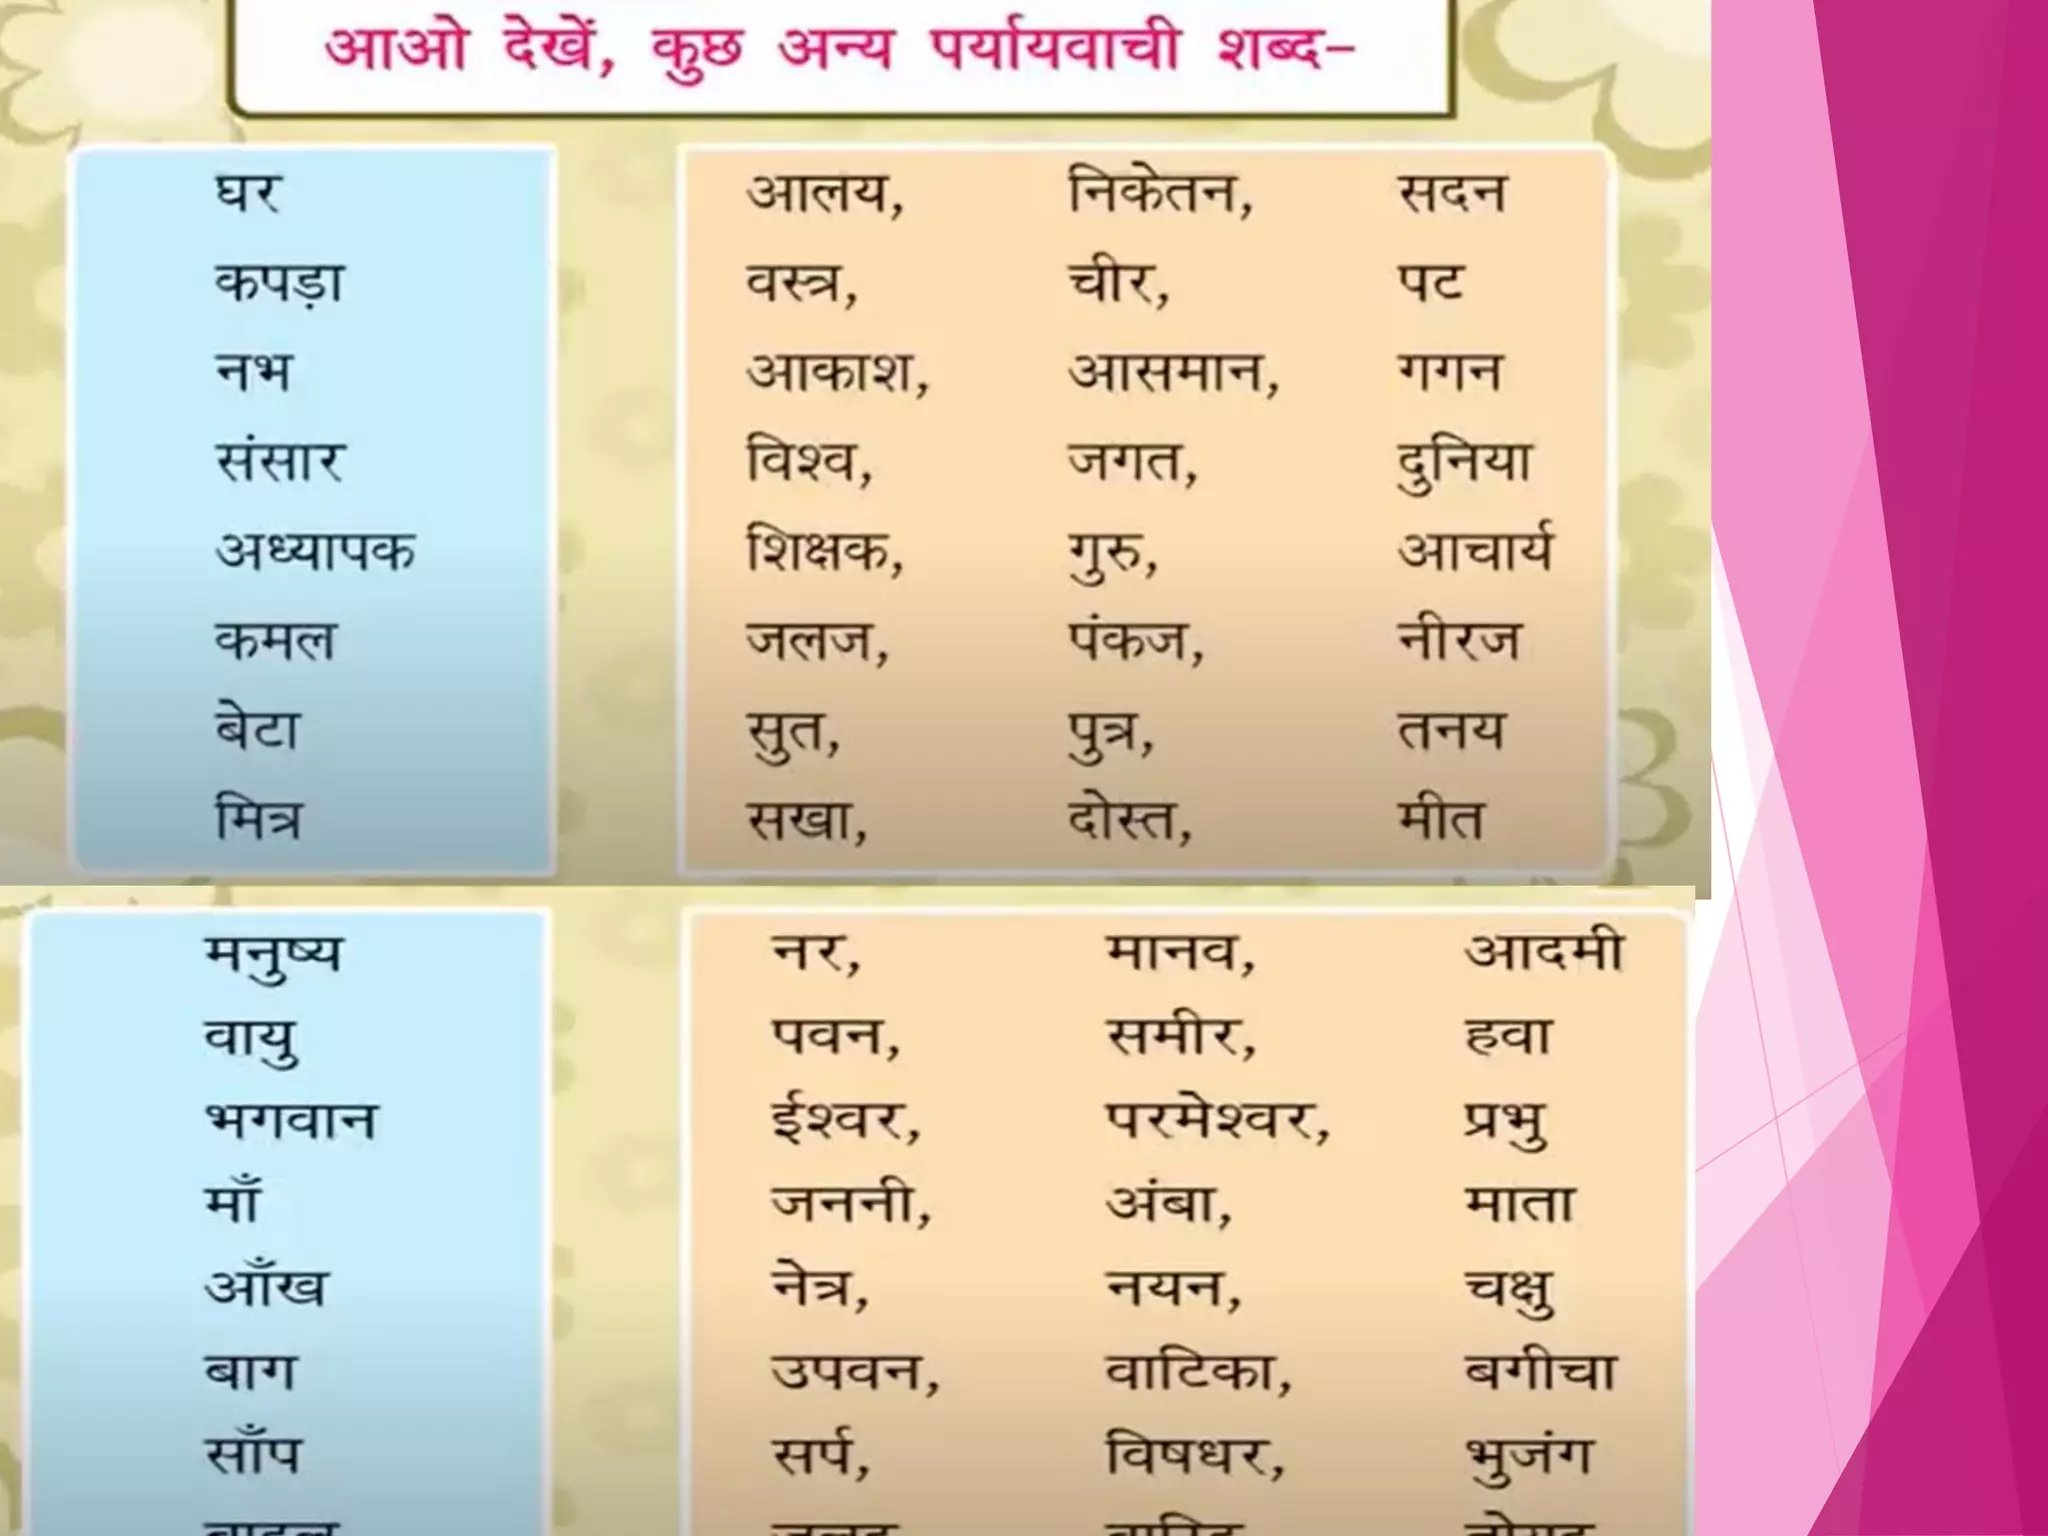 आओ देखें, कुछ अन्य पर्यायवाची शब्द-
घर आलय, निकेतन, सदन
कपड़ा वस्त्र, चीर, पट
नभ आकाश, आसमान, गगन
संसार विश्व, जगत, दुनिया
अध्यापक शिक्षक, गुरु, आचार्य
कमल जलज, पंकज, नीरज
बेटा सुत, पुत्र, तनय
मित्र सखा, दोस्त, मीत
मनुष्य नर, मानव, आदमी
वायु पवन, समीर, हवा
भगवान ईश्वर, परमेश्वर, प्रभु
माँ जननी, अंबा, माता
आँख नेत्र, नयन, चक्षु
बाग उपवन, वाटिका, बगीचा
साँप सर्प, विषधर, भुजंग